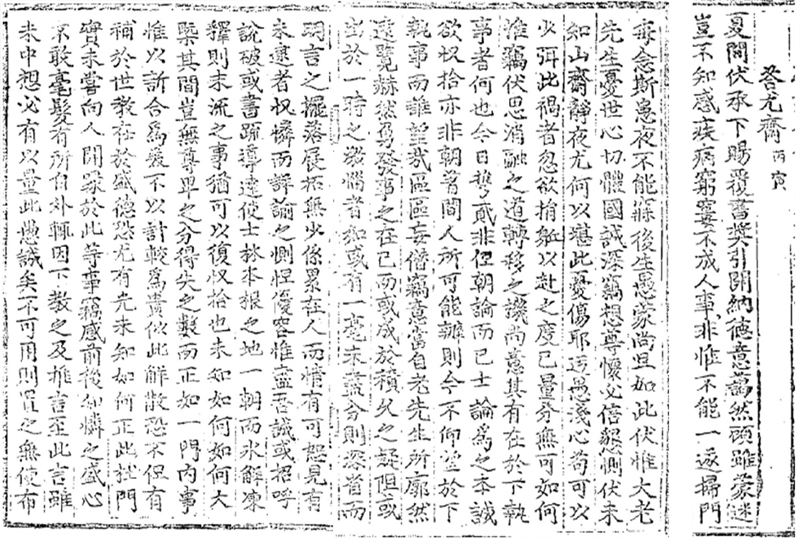 答尤齋 丙寅
夏間伏承下賜覆書獎引開納德意藹然頑雖蒙迷
豈不知感疾病窮窶不成人事非惟不能一遂掃門
每念斯患夜不能寐後生愚蒙尚且如此伏惟大老
先生憂世心切體國誠深竊想尊懷必倍懇惻伏未
知山齋靜夜尤何以堪此憂傷耶迂愚淺心苟可以
少弭此禍者忽欲捐軀以赴之度已量分無可如何
惟竊伏思消融之道轉移之議尚意其有在於下執
事者何也今日乖貳非但朝論而已士論爲之本誠
欲收拾亦非朝著間人所可能辦則今不仰望於下
執事而誰望哉區區妄僭竊意當自老先生所廓然
遠覽赫然勇發事之在己而或成於積久之疑阻或
出於一時之激惱者如或有一毫未盡分則深省而
明言之擺落展拓無少係累在人而情有可恕見有
未逮者收憐而詳諭之惻怛優容惟盡吾誠或招呼
說破或書疏導達使士林本根之地一朝而氷解凍
釋則末流之事猶可以復收拾也未知如何如何大
槩其間豈無尊卑之分得失之數而正如一門内事
惟以訢合爲 不以計較爲貴似此解散恐不但有
補於世敎在於盛德恐尤有光未知如何正此拙門
實未嘗向人開喙於此等事竊感前後知憐之盛心
不敢毫髮有所自外輒因下敎之及推言至此言雖
未中想必有以量此愚誠矣不可用則置之無使布